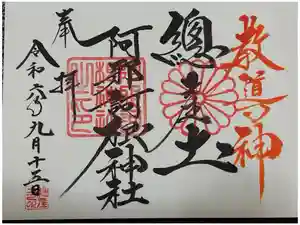 教導の神
總産土
阿邪訶根神社
奉拝
令和六年九月十五日